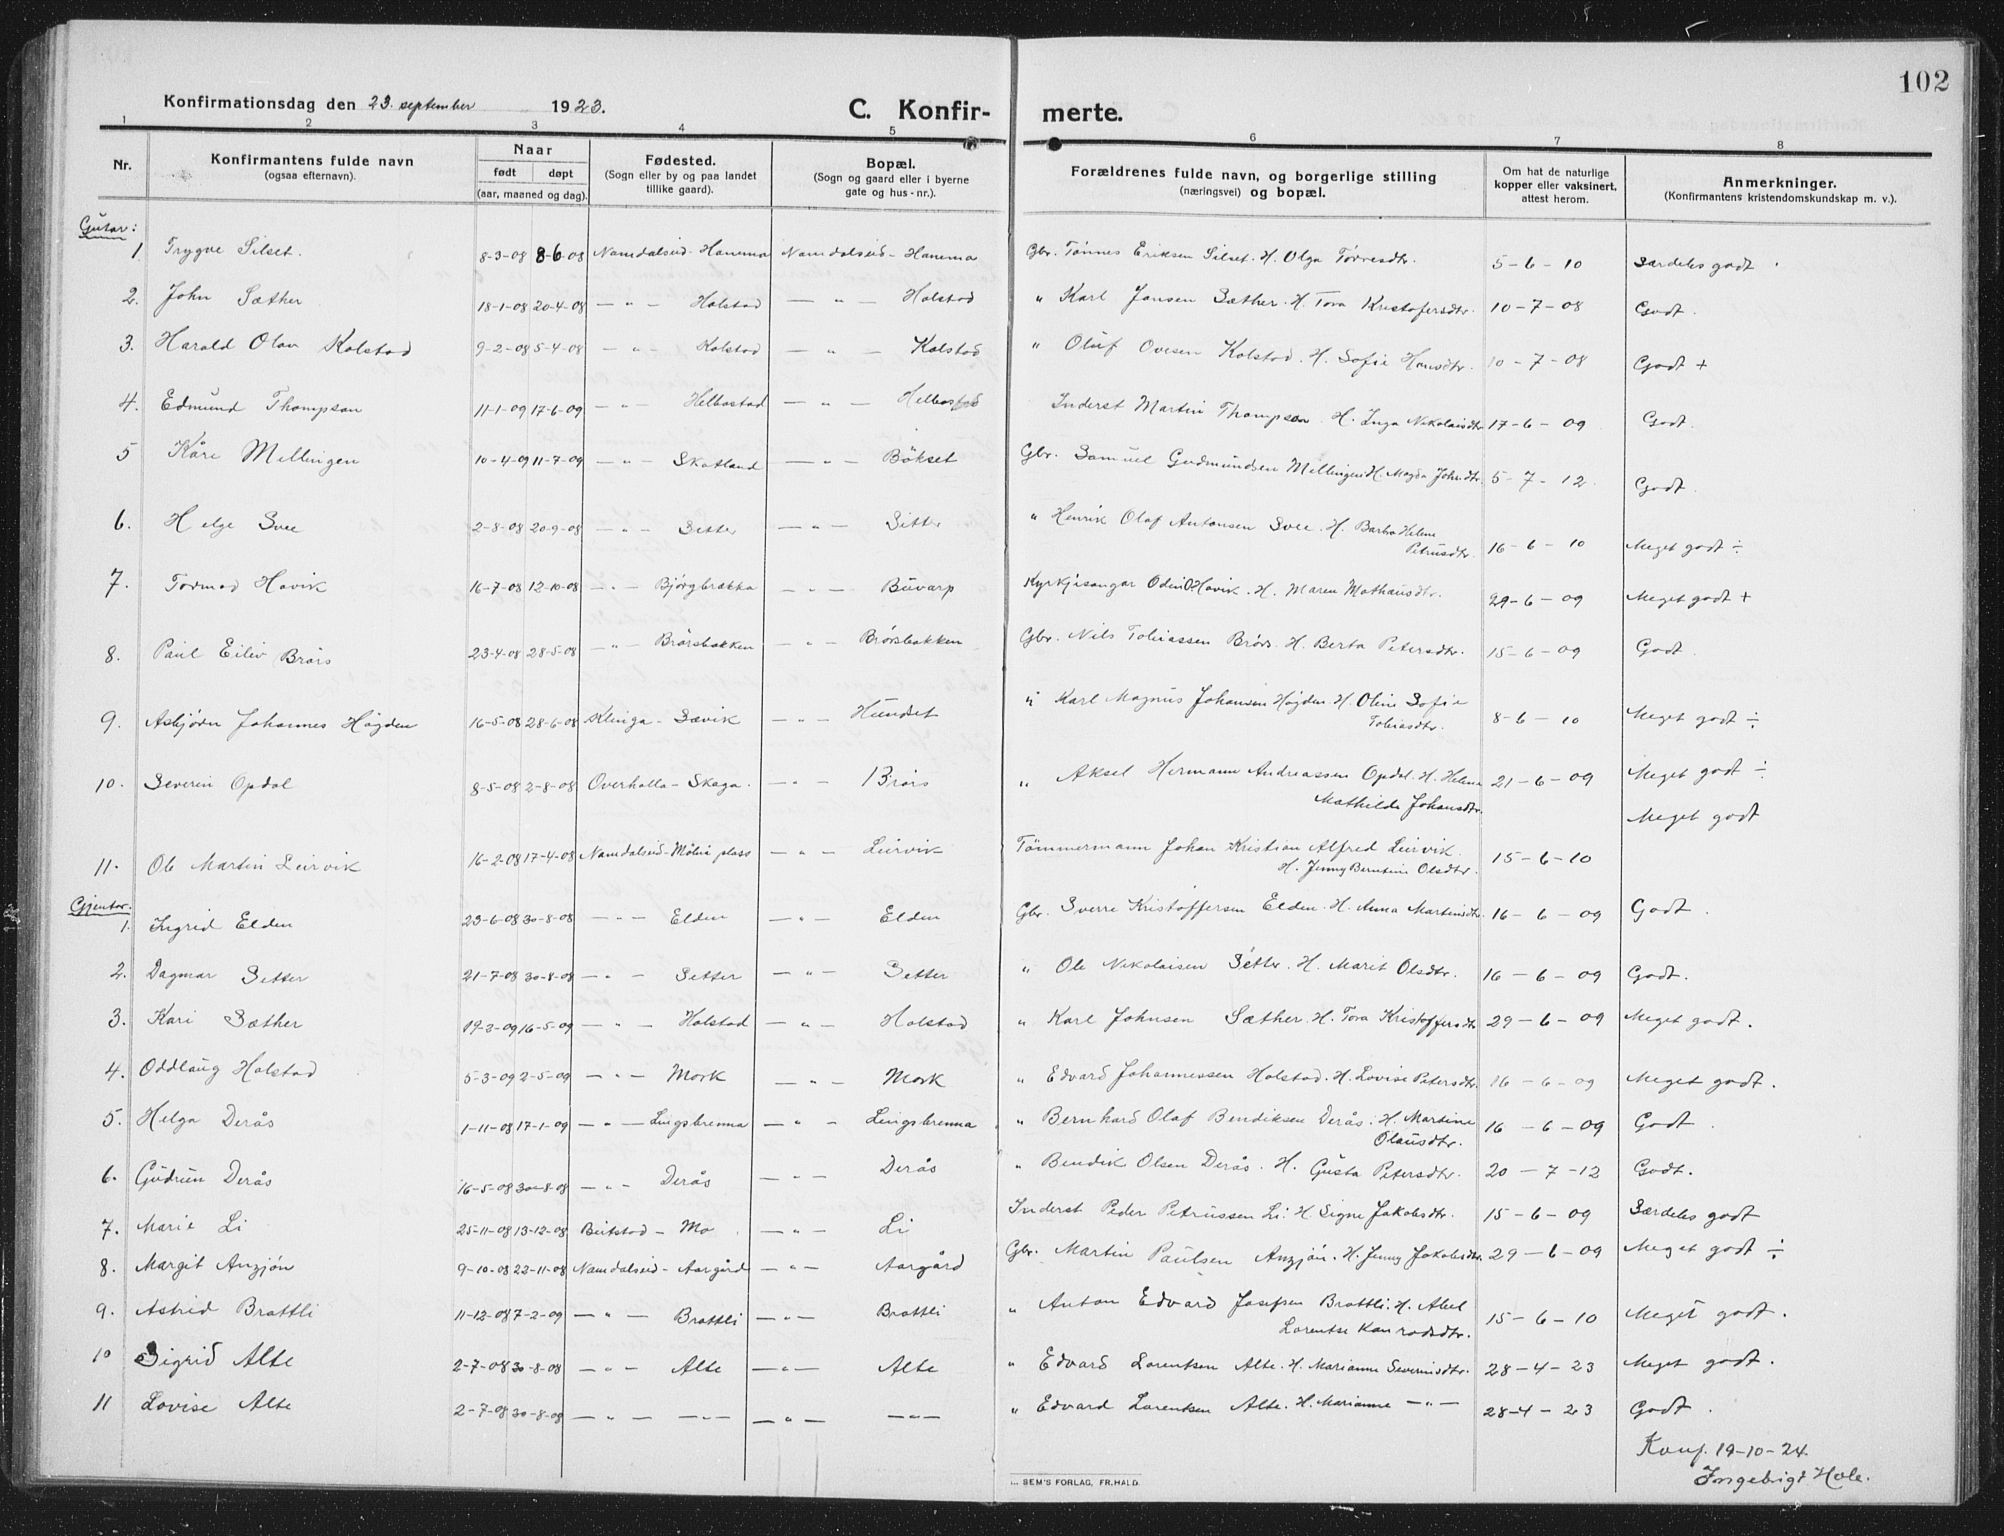 102
Konfirmationsdag den 23. september 1923.
C. Konfir- merte.
1 2 3 4 5 6 7 8
Nr.
Konfirmantens fulde navn
(ogsaa efternavn).
Naar
født døpt
(aar, maaned og dag).
Fødested.
(Sogn eller by og paa landet
tillike gaard).
Bopæl.
(Sogn og gaard eller i byerne
gate og hus - nr.).
Forældrenes fulde navn, og borgerlige stilling
(næringsvei) og bopæl.
Om hat de naturlige
kopper eller vaksinert,
attest herom.
Anmerkninger.
(Konfirmantens kristendomskundskap m. v.).
Gutar:
1 Trygve Silset. 8-3-08 8-6-08 Namdalseid - Hanema Namdalseid - Hanema Gbr. Tønnes Eriksen Silset. H. Olga Torresdtr. 5-6-10 Særdeles godt
2. John Sæther 18-1-08 20-4-08 — " — Holstad — " — Holstad " Karl Jansen Sæther. H. Tora Kristofersdtr. 10-7-08 Godt.
3. Harald Olav Kolstad 9-2-08 5-4-08 — " — Kolstad — " — Kolstad " Oluf Ovesen Kolstad. H. Sofie Hansdtr. 10-7-08 Godt +
4. Edmund Thompson 11-1-09 17-6-09 — " — Helbostad — " — Helbostad Inderst Martin Thompson. H. Inga Nikolaisdtr 17-6-09 Godt.
5 Kåre Mellingen 10-4-09 11-7-09 — " — Skatland — " — Bökset Gbr. Samuel Gudmundsen Mellingen H. Magda Johnsdtr. 5-7-12. Godt.
6. Helge Svee 2-8-08 20-9-08 — " — Setter — " — Sitter " Henrik Olaf Antonsen Svee. H. Barbro Helene
Petrusdtr. 16-6-10 Meget godt ÷
7. Tormod Havik 16-7-08 12-10-08 — " — Bjørgbrækka — " — Buvarp Kyrkjesongar Odin O. Havik. H. Maren Mathausdtr. 29-6-09 Meget godt +
8. Paul Eiliv Brørs 23-4-08 28-5-08 — " — Brørsbakken — " — Brørsbakken Gbr. Nils Tobiassen Brørs. H. Berta Petersdtr. 15-6-09 Godt.
9. Asbjørn Johannes Høgden 16-5-08 28-6-08 Klinga - Sævik — " — Hundet " Karl Magnus Johansen Høgden. H. Oline Sofie
Tobiasdtr. 8-6-10 Meget godt ÷
10. Severin Opdal 8-5-08 2-8-08 Overhalla - Skaga. — " — Brørs " Aksel Hermann Andreassen Opdal. H. Helene
Mathilde Johansdtr. 21-6-09 Meget godt ÷
Meget godt
11. Ole Martin Leirvik 16-2-08 17-4-08 Namdalseid - plass — " — Leirvik Tømmermann Johan Kristian Alfred Leirvik.
H. Jenny Berntine Olsdtr. 15-6-10
Gjentor:
1. Ingrid Elden 23-6-08 30-8-08 — " — Elden — " — Elden Gbr. Sverre Kristoffersen Elden. H. Anna Martinsdtr. 16-6-09 Godt.
2. Dagmar Setter 21-7-08 30-8-08 — " — Setter — " — Setter " Ole Nikolaisen Setter. H. Marit Olsdtr. 16-6-09 Godt.
3. Kari Sæther 19-2-09 16-5-09 — " — Holstad — " — Holstad " Karl Johnsen Sæther. H. Tora Kristoffersdtr 29-6-09 Meget godt.
4. Oddlaug Holstad 5-3-09 2-5-09 — " — Mork — " — Mork " Edvard Johannessen Holstad. H. Lovise Petersdtr. 16-6-09 Meget godt.
5. Helga Derås 1-11-08 17-1-09 — " — Lingsbrenna — " — Lingsbrenna " Bernhard Olaf Bendiksen Derås: H. Martine
Olausdtr. 16-6-09 Godt.
6. Gudrun Derås 16-5-08 30-8-08 — " — Derås — " — Derås " Bendik Olsen Derås. H. Gusta Petersdtr. 20-7-12 Godt.
7. Marie Li 25-11-08 13-12-08 Beitstad - Mo — " — Li Inderst Peder Petrussen Li. H. Signe Jakobsdtr. 15-6-09 Særdeles godt
8. Margit Anzjøn 9-10-08 22-11-08 Namdalseid - Aargård — " — Aargård Gbr. Martin Paulsen Anzjøn. H. Jenny Jakobsdtr. 29-6-09 Meget godt ÷
9. Astrid Brattli 11-12-08 7-2-09 — " — Brattli — " — Brattli " Anton Edvard Josefsen Brattli. H. Abel
Lorentse Konradsdtr. 15-6-10 Meget godt.
10 Sigrid Alte 2-7-08 30-8-08 — " — Alte — " — Alte " Edvard Lorentsen Alte. H. Marianne Severinsdtr. 28-4-23 Meget godt.
11 Lovise Alte 2-7-08 30-8-08 — " — — " — — " — — " — " Edvard Lorentsen Alte. H. Marianne — " — 28-4-23 Godt.
Konf. 19-10-24.
Ingebrigt Hole.
SEM'S FORLAG, FR.HALD.